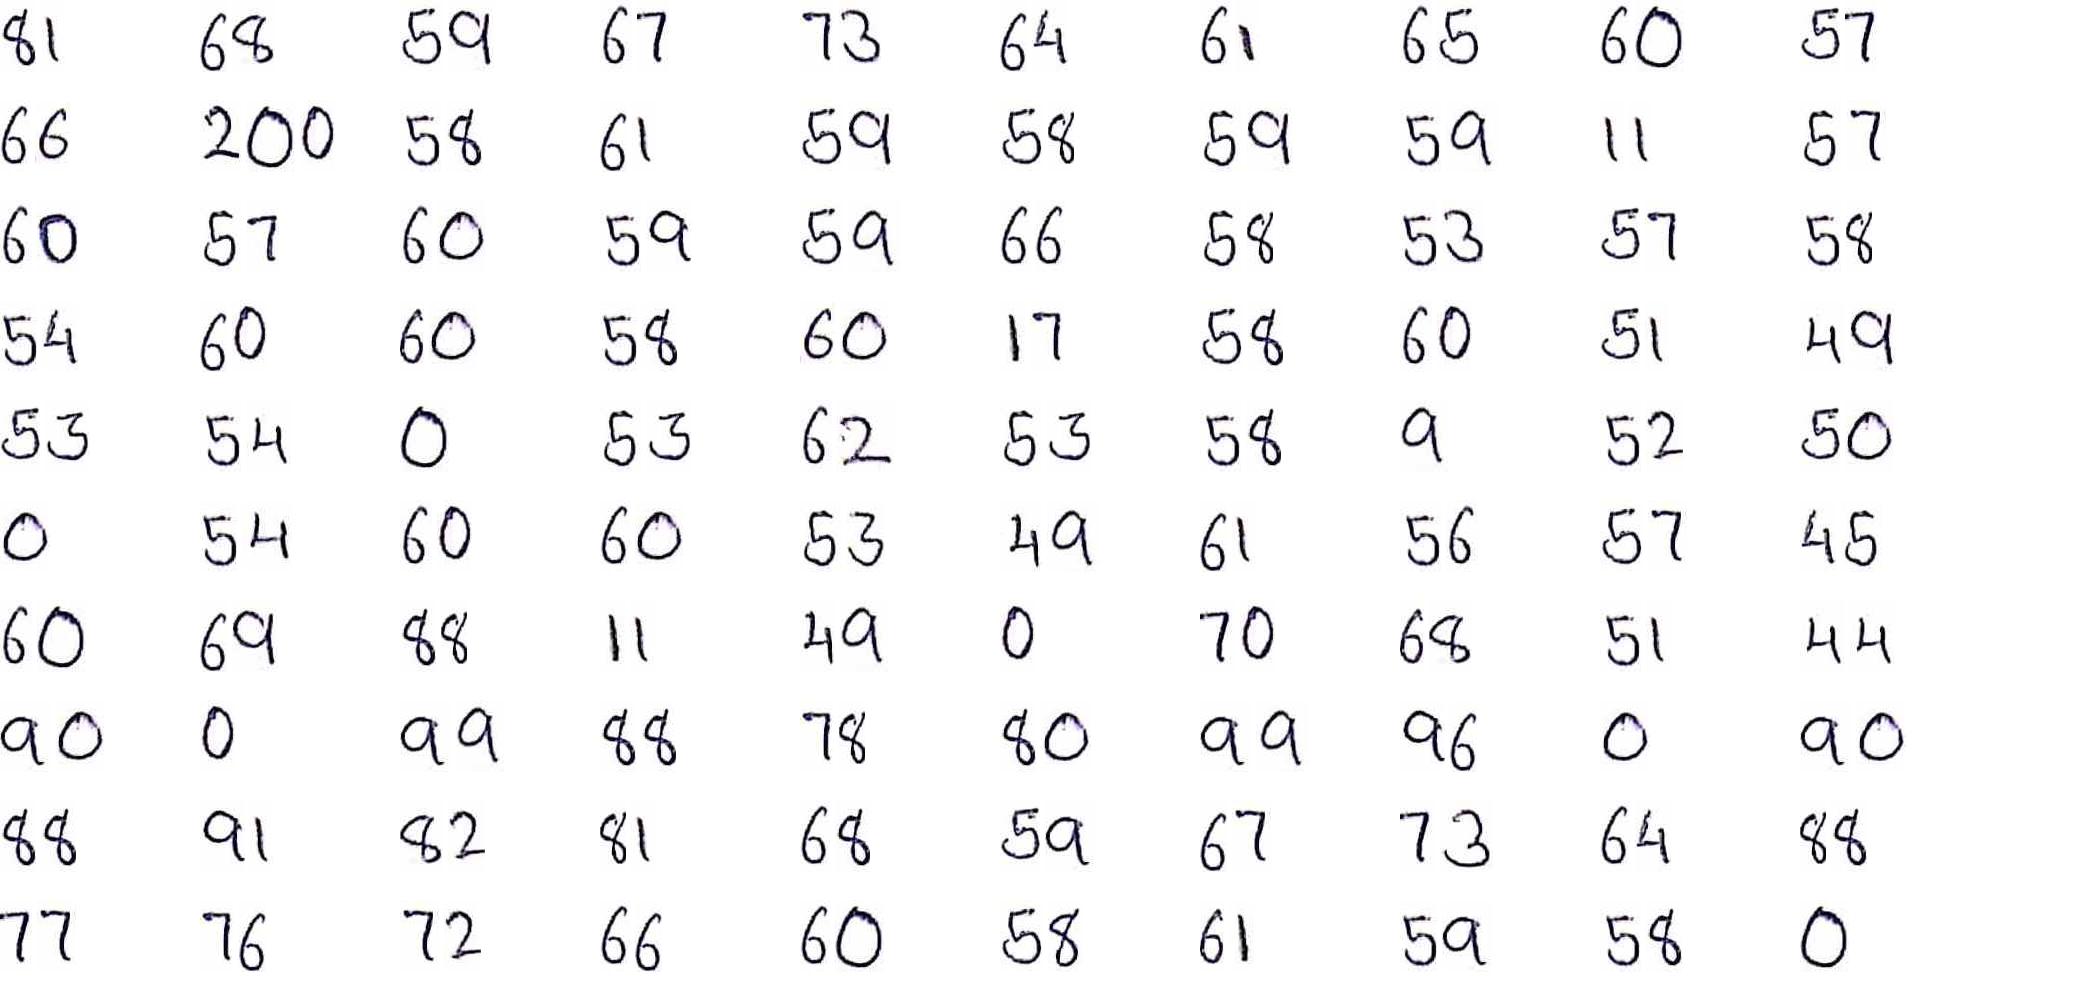 81 68 59 67 73 64 61 65 60 57
66 200 58 61 59 58 59 59 11 57
60 57 60 59 59 66 58 53 57 58
54 60 60 58 60 17 58 60 51 49
53 54 0 53 62 53 58 9 52 50
0 54 60 60 53 49 61 56 57 45
60 69 88 11 49 0 70 68 51 44
90 0 99 88 78 80 99 96 0 90
88 91 82 81 68 59 67 73 64 88
77 76 72 66 60 58 61 59 58 0